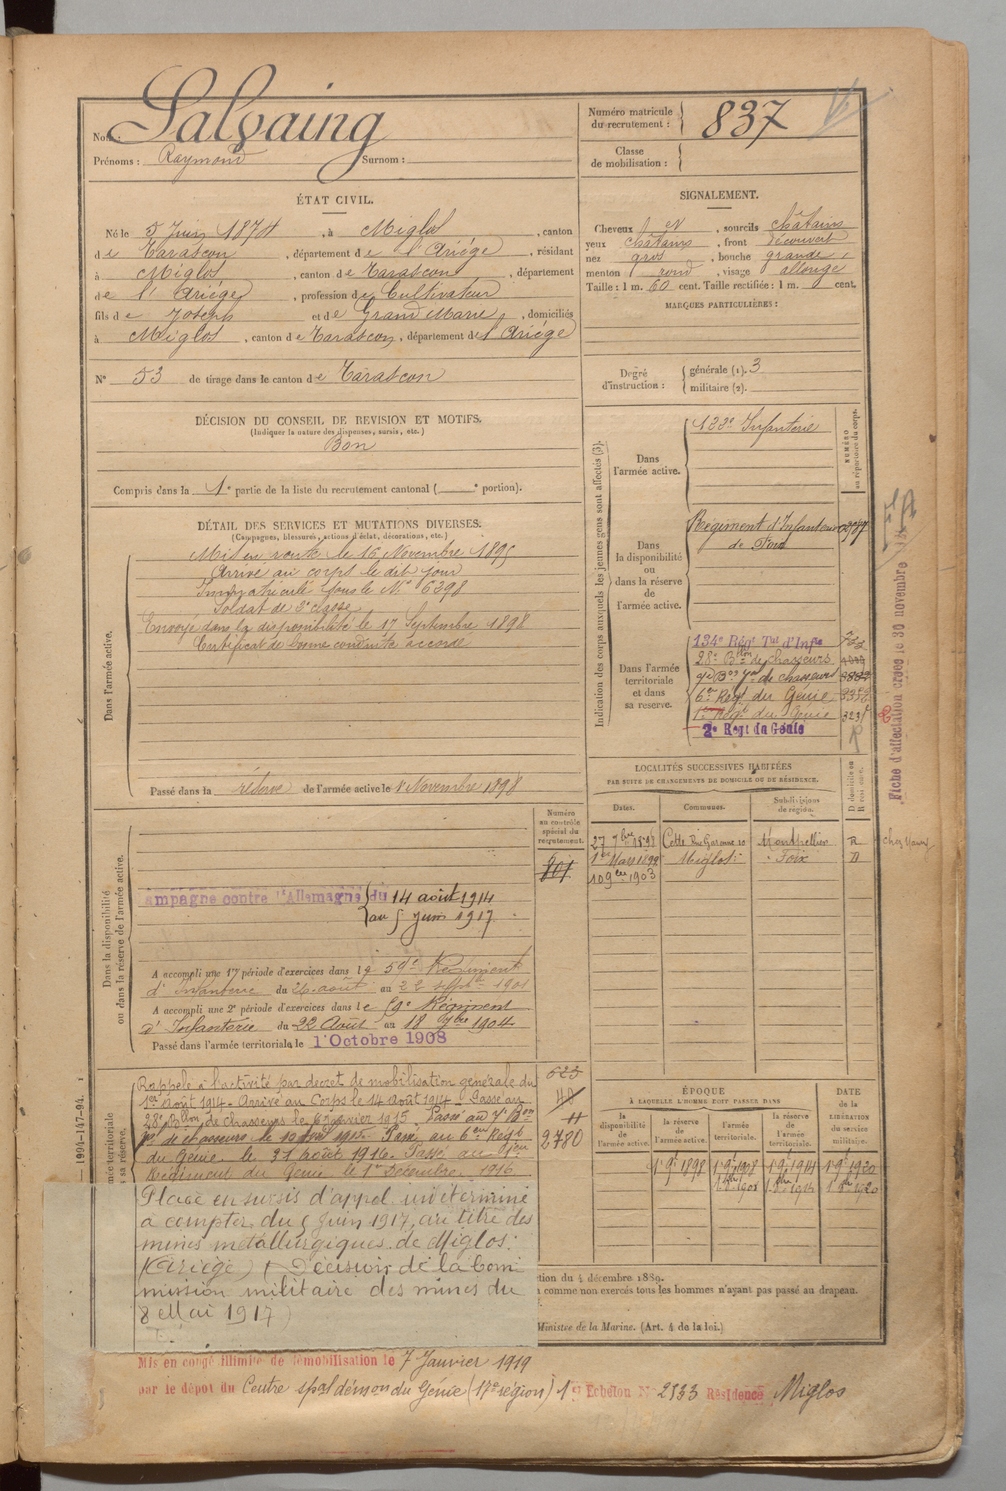 Nom : Salvaing
Prénoms : Raymond Surnom :
Numéro matricule du recrutement : 837
Classe de mobilisation :
ÉTAT CIVIL.
Né le 5 Juin 1874, à Miglos, canton
de Tarascon, département de l'Ariége, résidant
à Miglos, canton de Tarascon, département
de l'Ariége, profession de Cultivateur
fils de Joseph et de Grand Marie, domiciliés
à Miglos, canton de Tarascon, département de l'Ariége
N° 53 de tirage dans le canton de Tarascon
SIGNALEMENT.
Cheveux et, sourcils châtains
yeux châtains, front découvert
nez gros, bouche grande,
menton rond, visage allongé
Taille : 1 m. 60 cent. Taille rectifiée : 1 m. cent.
MARQUES PARTICULIÈRES :
Degré d'instruction : générale (1). 3
militaire (2).
DÉCISION DU CONSEIL DE REVISION ET MOTIFS.
(Indiquer la nature des dispenses, sursis, etc.)
Bon
Compris dans la 1e partie de la liste du recrutement cantonal ( e portion).
DÉTAIL DES SERVICES ET MUTATIONS DIVERSES.
(Campagnes, blessures, actions d'éclat, décorations, etc.)
Dans l'armée active.
Mis en route le 16 Novembre 1895
Arrivé au corps le dit jour
Immatriculé sous le N° 6298
Soldat de 2e classe
Envoyé dans la disponibilité le 17 Septembre 1898
Certificat de bonne conduite accordé
Passé dans la réserve de l'armée active le 1er Novembre 1898
Indication des corps auxquels les jeunes gens sont affectés (3).
NUMÉRO au répertoire du corps.
Dans l'armée active.
122e Infanterie
Dans la disponibilité ou dans la réserve de l'armée active.
Régiment d'Infanterie
de Foix
Dans l'armée territoriale et dans sa réserve.
134e Régt Tal d'Infie
28e Bon de chasseurs
7e Bon Tal de chasseurs
6e Régt du Génie
1er Régt du Génie
2e Régt du Génie
Fiche d'affectation créée le 30 novembre
LOCALITÉS SUCCESSIVES HABITÉES
PAR SUITE DE CHANGEMENTS DE DOMICILE OU DE RÉSIDENCE.
Dates. Communes. Subdivisions de région. D domicile ou R résidence.
27 7bre 1898 Cette Rue Garenne 10 Montpellier R
1er Mars 1899 Miglos Foix D
10 9bre 1903
Numéro au contrôle spécial du recrutement.
801
Dans la disponibilité ou dans la réserve de l'armée active.
ampagne contre l'Allemagne du 14 août 1914
au 5 Juin 1917
A accompli une 1re période d'exercices dans le 59e Régiment
d'Infanterie du 26 août au 22 septbre 1901
A accompli une 2e période d'exercices dans le 59e Régiment
d'Infanterie du 22 Août au 18 7bre 1904
Passé dans l'armée territoriale le 1 Octobre 1908
Rappelé à l'activité par décret de mobilisation générale du
1er août 1914. Arrivé au Corps le 14 août 1914. Passé au
28e Bllon de chasseurs le Février 1915 Passé au 7e Bon
Tal de chasseurs le 10 1915. Passé au 6eme Régt
du Génie le 31 août 1916. Passé au 1er
Régiment du Génie le 1er Décembre 1916
2780
Placé en sursis d'appel indéterminé
à compter du 5 Juin 1917, au titre des
mines métallurgiques de Miglos.
(Ariège) (Décision de la Com
mission militaire des mines du
8 Mai 1917)
ÉPOQUE
À LAQUELLE L'HOMME DOIT PASSER DANS
DATE de la LIBÉRATION du service militaire.
la disponibilité de l'armée active. la réserve de l'armée active. l'armée territoriale. la réserve de l'armée territoriale.
1er 9bre 1898 1er 9bre 1908 1er 9bre 1914 1er 9bre 1920
1er 8bre 1908 1er 8bre 1914 1er 8bre 1920
ction du 4 décembre 1889.
comme non exercés tous les hommes n'ayant pas passé au drapeau.
Ministre de la Marine. (Art. 4 de la loi.)
— 1994-147-94.
Mis en congé illimité de démobilisation le 7 Janvier 1919
par le dépôt du Centre spal démon du Génie (17e région) 1er Echelon N° 2533 Résidence Miglos